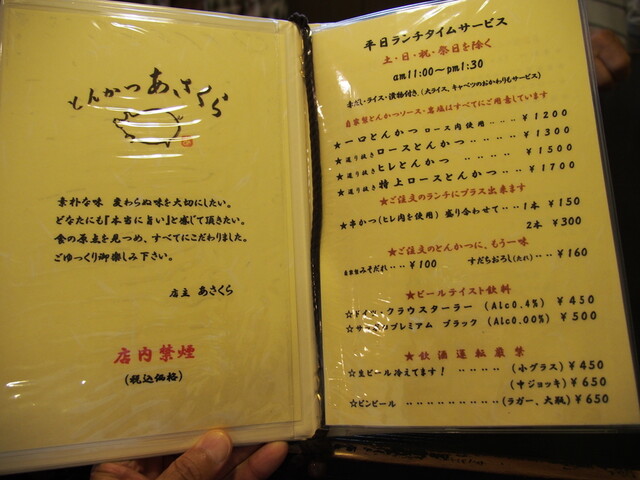 とんかつ あさくら
素朴な味 変わらぬ味を大切にしたい。
どなたにも『本当に旨い』と感じて頂きたい。
食の原点を見つめ、すべてにこだわりました。
ごゆっくり御楽しみ下さい。
店主 あさくら
店内禁煙
(税込価格)
平日ランチタイムサービス
土・日・祝・祭日を除く
am11:00〜pm1:30
赤だし・ライス・漬物付き、(大ライス、キャベツのおかわりもサービス)
自家製とんかつソース・岩塩はすべてにご用意しています
★一口とんかつ ロース肉使用‥‥ ¥1200
★選り抜き ロースとんかつ ‥‥ ¥1300
★選り抜き ヒレとんかつ ‥‥‥ ¥1500
★選り抜き 特上ロースとんかつ‥ ¥1700
★ご注文のランチにプラス出来ます
★串かつ(ヒレ肉を使用) 盛り合わせて‥1本 ¥150
2本 ¥300
★ご注文のとんかつに、もう一味
自家製みそだれ‥‥ ¥100 すだちおろし(たれ)‥ ¥160
★ビールテイスト飲料
☆ドイツ・クラウスターラー (Alc0.4%) ¥450
☆サッポロプレミアム ブラック (Alc0.00%) ¥500
★飲酒運転厳禁
☆生ビール冷えてます! ‥‥‥ (小グラス) ¥450
(中ジョッキ) ¥650
☆ビンビール‥‥‥‥‥‥‥ (ラガー、大瓶) ¥650